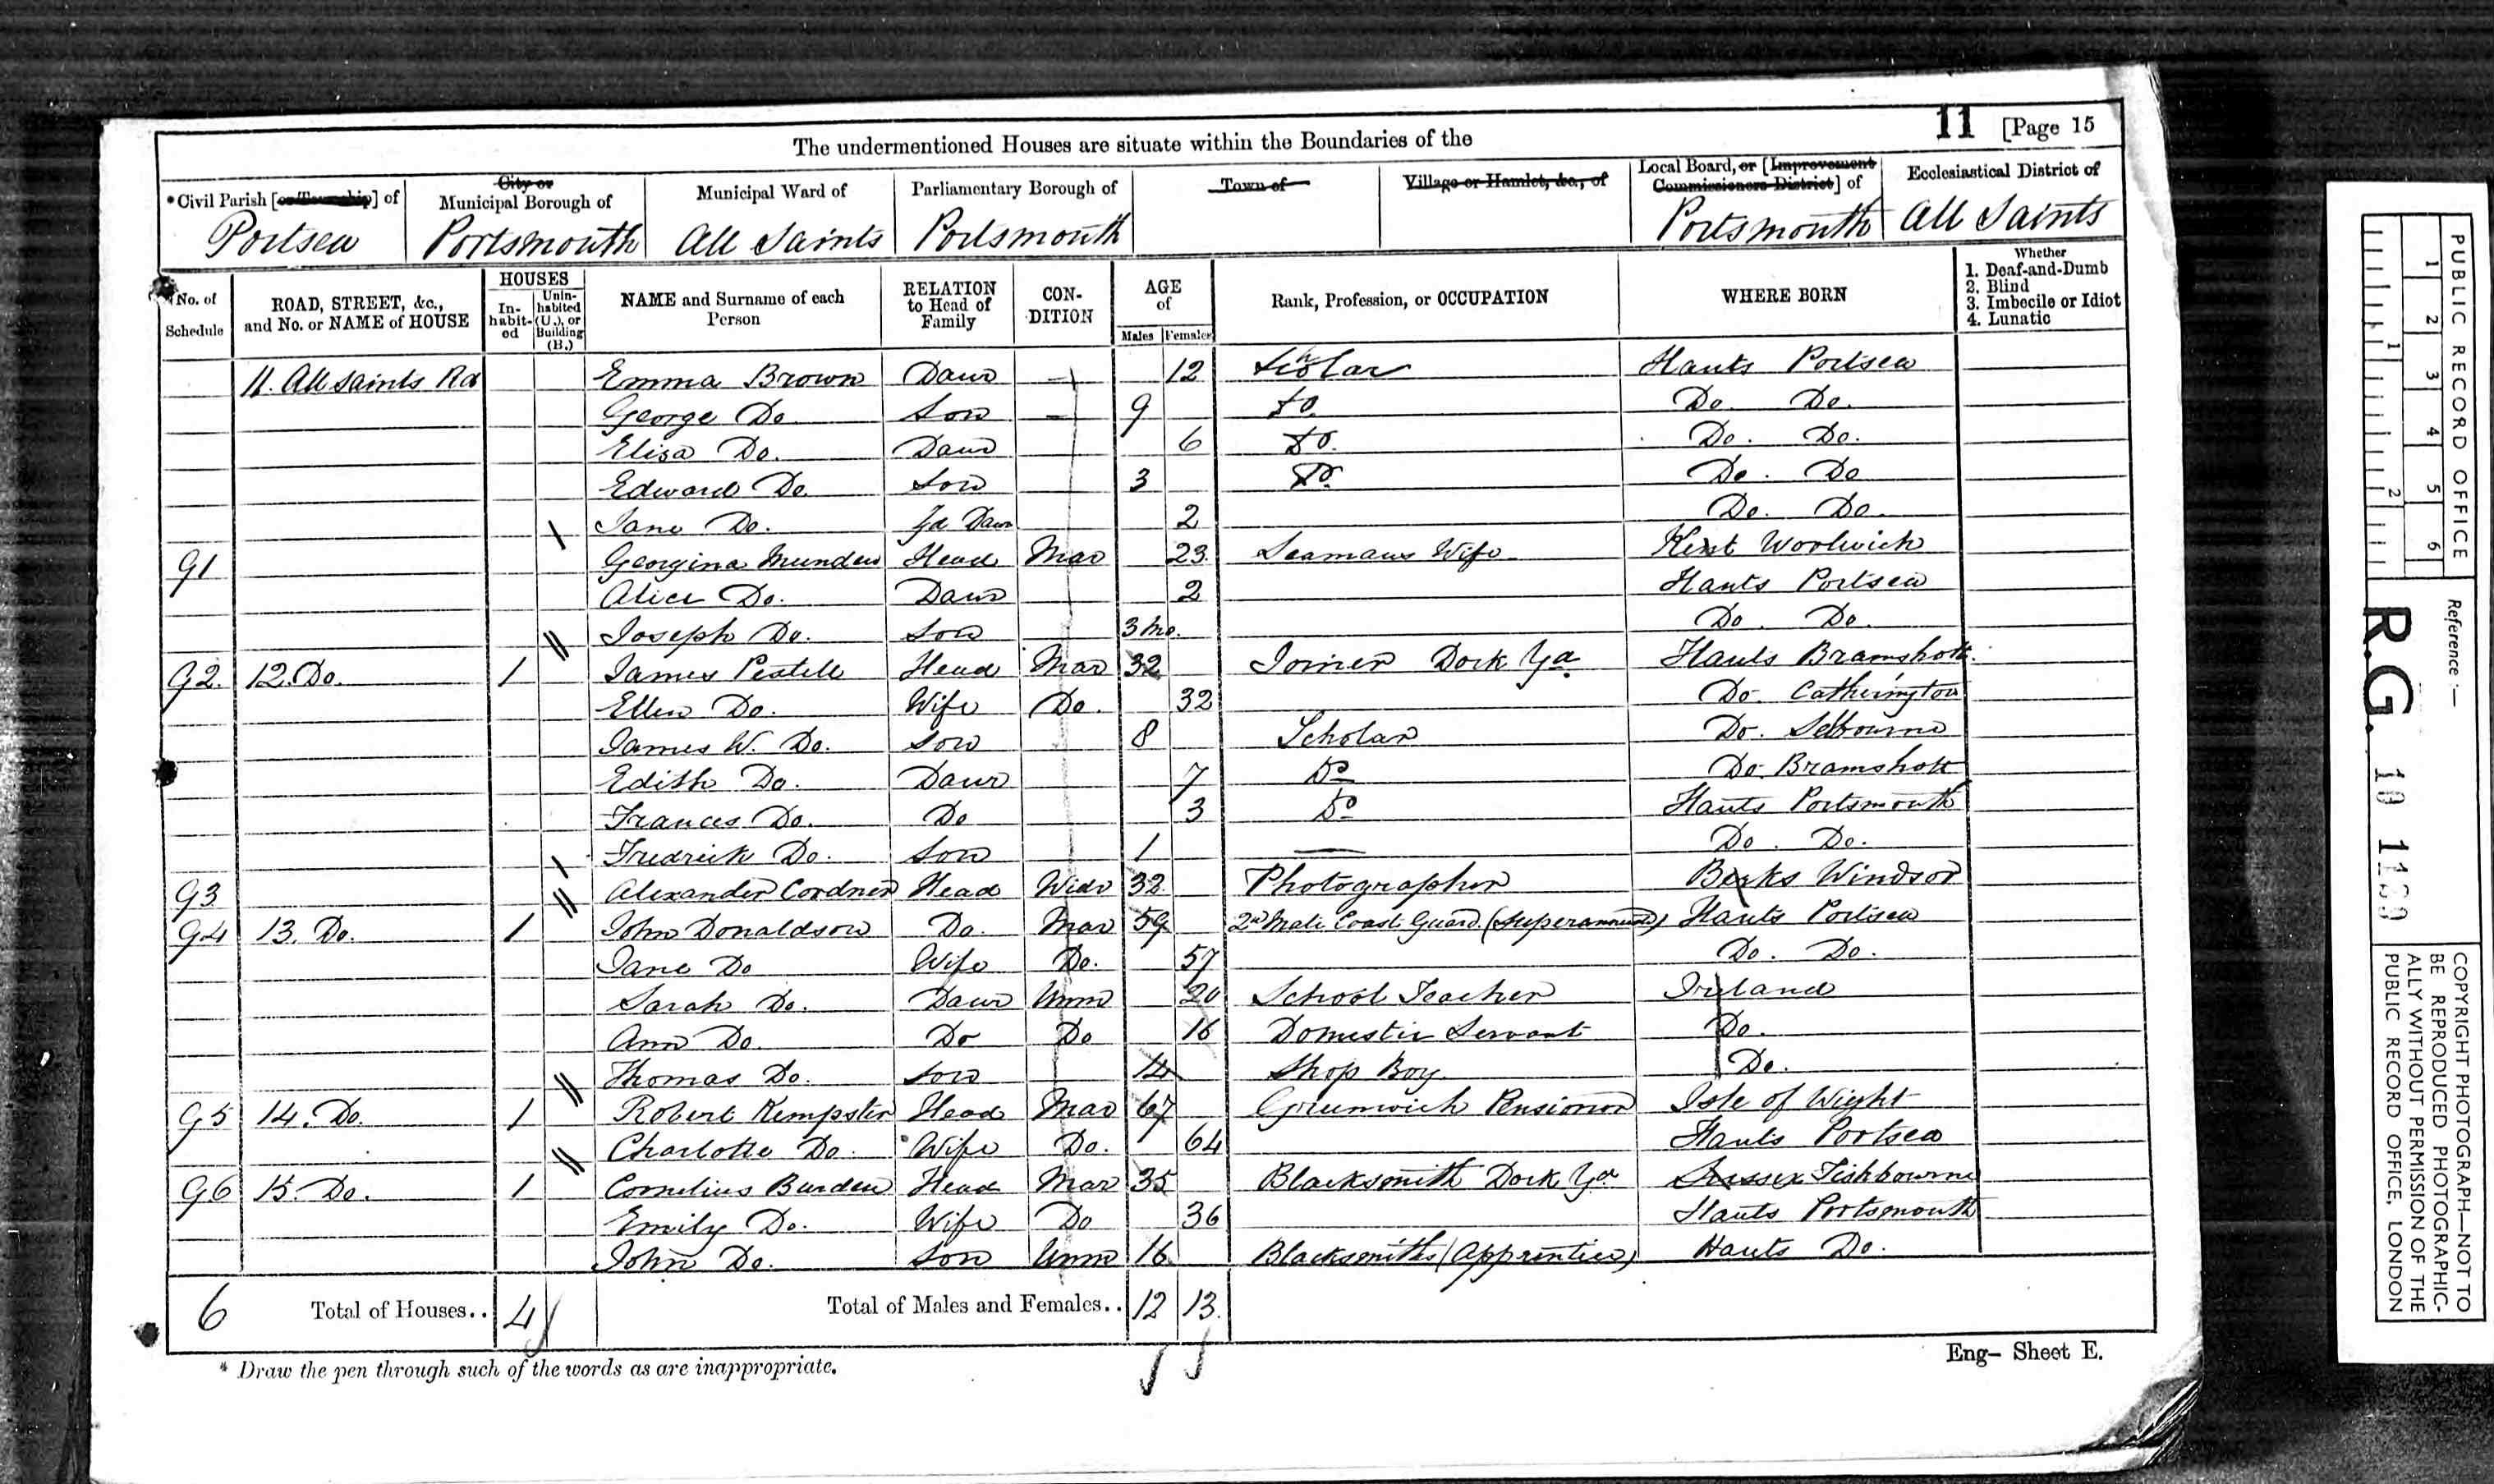 11 [Page 15
The undermentioned Houses are situate within the Boundaries of the
*Civil Parish [or Township] of City or Municipal Borough of Municipal Ward of Parliamentary Borough of Town of Village or Hamlet, &c., of Local Board, or [Improvement Commissioners District] of Ecclesiastical District of
Portsea Portsmouth All Saints Portsmouth Portsmouth All Saints
No. of Schedule ROAD, STREET, &c., and No. or NAME of HOUSE HOUSES Inhabited Uninhabited (U.), or Building (B.) NAME and Surname of each Person RELATION to Head of Family CONDITION AGE of Males Females Rank, Profession, or OCCUPATION WHERE BORN Whether 1. Deaf-and-Dumb 2. Blind 3. Imbecile or Idiot 4. Lunatic
11. All Saints Rd Emma Brown Daur 12 Scholar Hants Portsea
George Do. Son 9 Do. Do. Do.
Eliza Do. Daur 6 Do. Do. Do.
Edward Do. Son 3 Do. Do. Do
Jane Do. Gd Daur 2 Do. Do.
91 Georgina Munden Head Mar 23 Seamans Wife Kent Woolwich
Alice Do. Daur 2 Hants Portsea
Joseph Do. Son 3 Mo. Do. Do.
92. 12. Do. 1 James Pestell Head Mar 32 Joiner Dock Yd Hants Bramshott
Ellen Do. Wife Do. 32 Do. Catherington
James W. Do. Son 8 Scholar Do. Selbourne
Edith Do. Daur 7 Do Do. Bramshott
Frances Do. Do 3 Do Hants Portsmouth
Fredrick Do. Son 1 — Do. Do.
93 Alexander Cordner Head Widr 32 Photographer Berks Windsor
94 13. Do. 1 John Donaldson Do. Mar 59 2nd Mate Coast Guard (Superannuated) Hants Portsea
Jane Do Wife Do. 57 Do. Do.
Sarah Do. Daur Unm 20 School Teacher Ireland
Ann Do. Do Do 16 Domestic Servant Do.
Thomas Do. Son 14 Shop Boy Do.
95 14. Do. 1 Robert Kempster Head Mar 67 Greenwich Pensioner Isle of Wight
Charlotte Do. Wife Do. 64 Hants Portsea
96 15. Do. 1 Cornelius Burden Head Mar 35 Blacksmith Dock Yd Sussex Fishbourne
Emily Do. Wife Do 36 Hants Portsmouth
John Do. Son Unm 16 Blacksmiths (Apprentice) Hants Do.
6 Total of Houses.. 4 Total of Males and Females.. 12 13
* Draw the pen through such of the words as are inappropriate.
Eng— Sheet E.
PUBLIC RECORD OFFICE
1 2 3 4 5 6
1 2
Reference :—
R.G. 10 1139
COPYRIGHT PHOTOGRAPH—NOT TO
BE REPRODUCED PHOTOGRAPHIC-
ALLY WITHOUT PERMISSION OF THE
PUBLIC RECORD OFFICE, LONDON